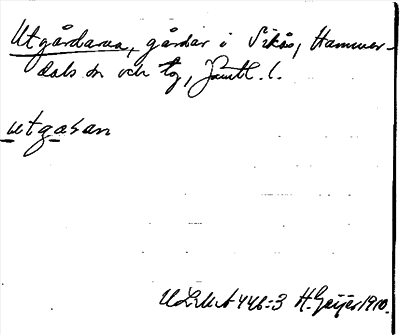 Utgårdarna, gårdar i Sikås, Hammer-
dals sn och tg, Jämtl. l.
utgaɦan
ULMA 446:3 H. Geijer 1910.